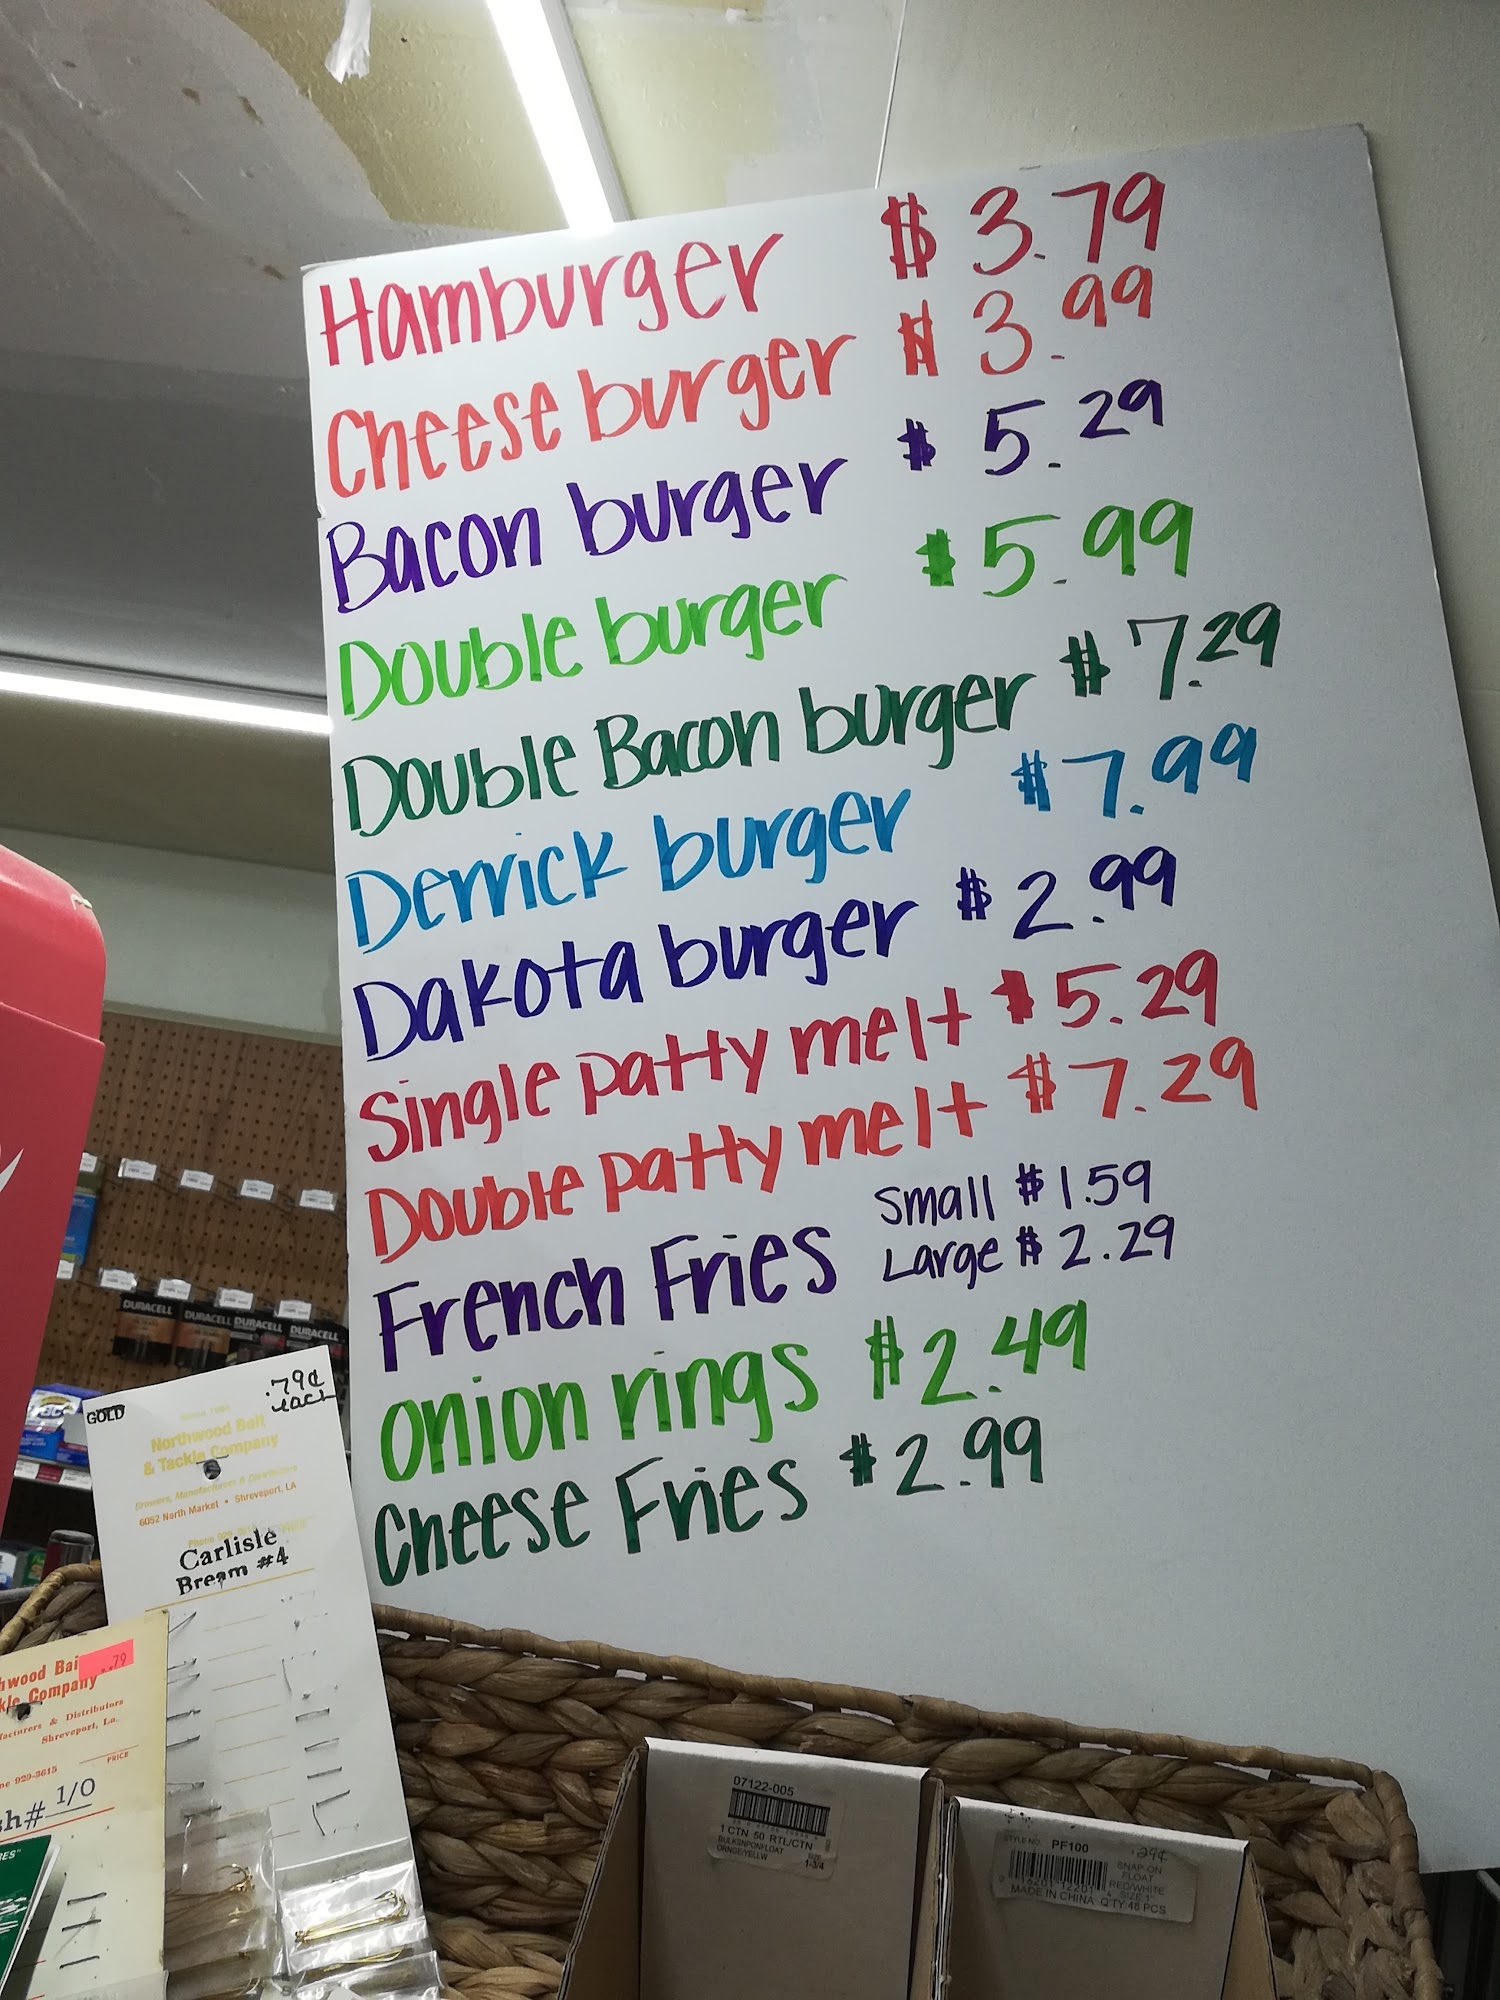 Hamburger $ 3.79
Cheese burger $ 3.99
Bacon burger $ 5.29
Double burger $ 5.99
Double Bacon burger $ 7.29
Derrick burger $ 7.99
Dakota burger $ 2.99
Single patty melt $ 5.29
Double patty melt $ 7.29
French Fries Small $ 1.59
Large $ 2.29
onion rings $ 2.49
Cheese Fries $ 2.99
DURACELL
DURACELL
DURACELL
DURACELL
GOLD
.79¢
each
Northwood Bait
& Tackle Company
Growers, Manufacturers & Distributors
6052 North Market • Shreveport, LA
Carlisle
Bream #4
.79
Company
& Distributors
Shreveport, La.
PRICE
929-3615
1/0
07122-005
1 CTN 50 RTL/CTN
1-3/4
STYLE NO. PF100
.29¢
SNAP-ON
FLOAT
RED/WHITE
SIZE 1"
MADE IN CHINA Q'TY 48 PCS